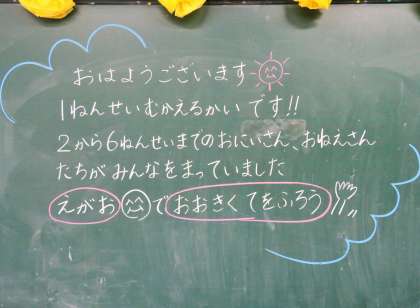 おはようございます
1ねんせいむかえるかい です!!
2から6ねんせいまでのおにいさん、おねえさん
たちが みんなをまっていました
えがお で おおきくてをふろう